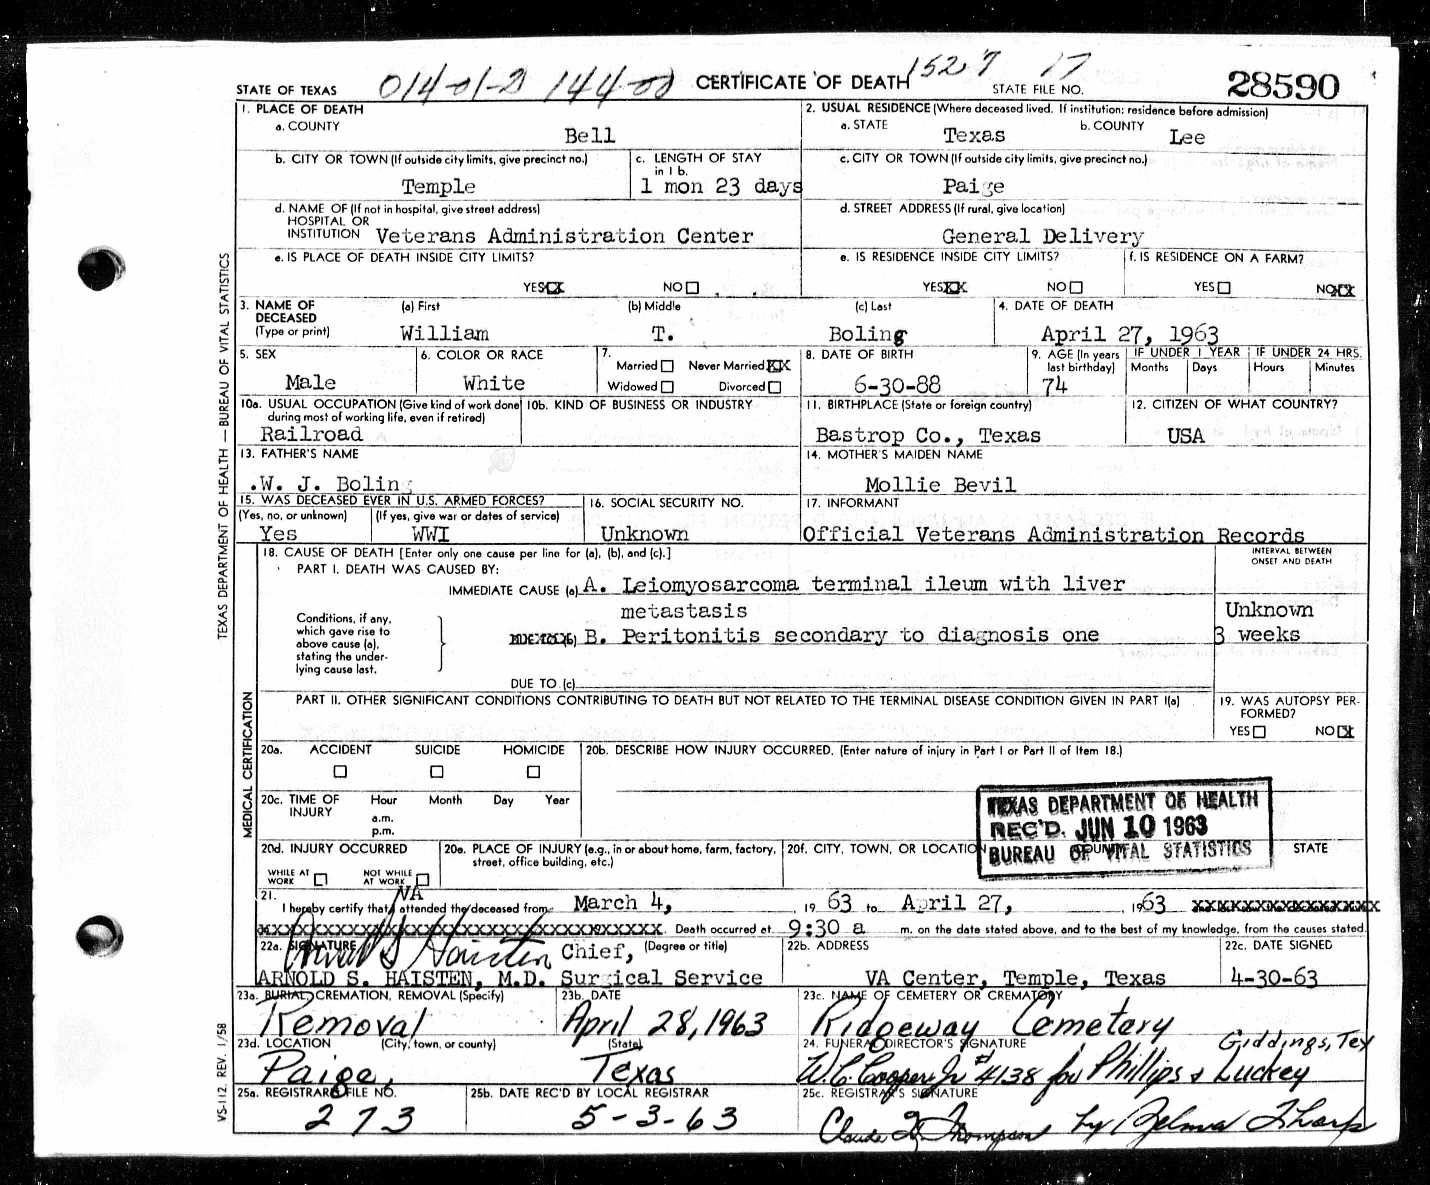 STATE OF TEXAS 014-01-2 144-00 CERTIFICATE OF DEATH 1527 17 STATE FILE NO. 28590
1. PLACE OF DEATH 2. USUAL RESIDENCE (Where deceased lived. If institution: residence before admission)
a. COUNTY Bell a. STATE Texas b. COUNTY Lee
b. CITY OR TOWN (If outside city limits, give precinct no.) c. LENGTH OF STAY in 1 b. c. CITY OR TOWN (If outside city limits, give precinct no.)
Temple 1 mon 23 days Paige
d. NAME OF (If not in hospital, give street address) HOSPITAL OR INSTITUTION d. STREET ADDRESS (If rural, give location)
Veterans Administration Center General Delivery
e. IS PLACE OF DEATH INSIDE CITY LIMITS? e. IS RESIDENCE INSIDE CITY LIMITS? f. IS RESIDENCE ON A FARM?
YES XX NO YES XX NO YES NO XX
3. NAME OF DECEASED (Type or print) (a) First (b) Middle (c) Last 4. DATE OF DEATH
William T. Boling April 27, 1963
5. SEX 6. COLOR OR RACE 7. Married Never Married XX Widowed Divorced 8. DATE OF BIRTH 9. AGE (In years last birthday) IF UNDER 1 YEAR Months Days IF UNDER 24 HRS. Hours Minutes
Male White 6-30-88 74
10a. USUAL OCCUPATION (Give kind of work done during most of working life, even if retired) 10b. KIND OF BUSINESS OR INDUSTRY 11. BIRTHPLACE (State or foreign country) 12. CITIZEN OF WHAT COUNTRY?
Railroad Bastrop Co., Texas USA
13. FATHER'S NAME 14. MOTHER'S MAIDEN NAME
.W. J. Boling Mollie Bevil
15. WAS DECEASED EVER IN U.S. ARMED FORCES? 16. SOCIAL SECURITY NO. 17. INFORMANT
(Yes, no, or unknown) (If yes, give war or dates of service)
Yes WWI Unknown Official Veterans Administration Records
18. CAUSE OF DEATH [Enter only one cause per line for (a), (b), and (c).] INTERVAL BETWEEN ONSET AND DEATH
PART I. DEATH WAS CAUSED BY:
IMMEDIATE CAUSE (a) A. Leiomyosarcoma terminal ileum with liver
metastasis Unknown
Conditions, if any, which gave rise to above cause (a), stating the under-lying cause last.
B. Peritonitis secondary to diagnosis one 3 weeks
DUE TO (c)
PART II. OTHER SIGNIFICANT CONDITIONS CONTRIBUTING TO DEATH BUT NOT RELATED TO THE TERMINAL DISEASE CONDITION GIVEN IN PART I(a) 19. WAS AUTOPSY PER-FORMED?
YES NO X
20a. ACCIDENT SUICIDE HOMICIDE 20b. DESCRIBE HOW INJURY OCCURRED. (Enter nature of injury in Part I or Part II of Item 18.)
20c. TIME OF INJURY Hour Month Day Year
a.m.
p.m.
TEXAS DEPARTMENT OF HEALTH
REC'D. JUN 10 1963
BUREAU OF VITAL STATISTICS
20d. INJURY OCCURRED 20e. PLACE OF INJURY (e.g., in or about home, farm, factory, street, office building, etc.) 20f. CITY, TOWN, OR LOCATION STATE
WHILE AT WORK NOT WHILE AT WORK
21. I hereby certify that VA attended the deceased from March 4, 1963 to April 27, 1963
Death occurred at 9:30 a m. on the date stated above, and to the best of my knowledge, from the causes stated.
22a. SIGNATURE Arnold S Haisten Chief, (Degree or title) 22b. ADDRESS 22c. DATE SIGNED
ARNOLD S. HAISTEN, M.D. Surgical Service VA Center, Temple, Texas 4-30-63
23a. BURIAL, CREMATION, REMOVAL (Specify) 23b. DATE 23c. NAME OF CEMETERY OR CREMATORY
Removal April 28, 1963 Ridgeway Cemetery
23d. LOCATION (City, town, or county) (State) 24. FUNERAL DIRECTOR'S SIGNATURE Giddings, Tex
Paige, Texas W.C. Cooper Jr #4138 for Phillips & Luckey
25a. REGISTRAR'S FILE NO. 25b. DATE REC'D BY LOCAL REGISTRAR 25c. REGISTRAR'S SIGNATURE
273 5-3-63 Claude Thompson by Zelma Tharp
TEXAS DEPARTMENT OF HEALTH — BUREAU OF VITAL STATISTICS
MEDICAL CERTIFICATION
VS-112 REV. 1/58